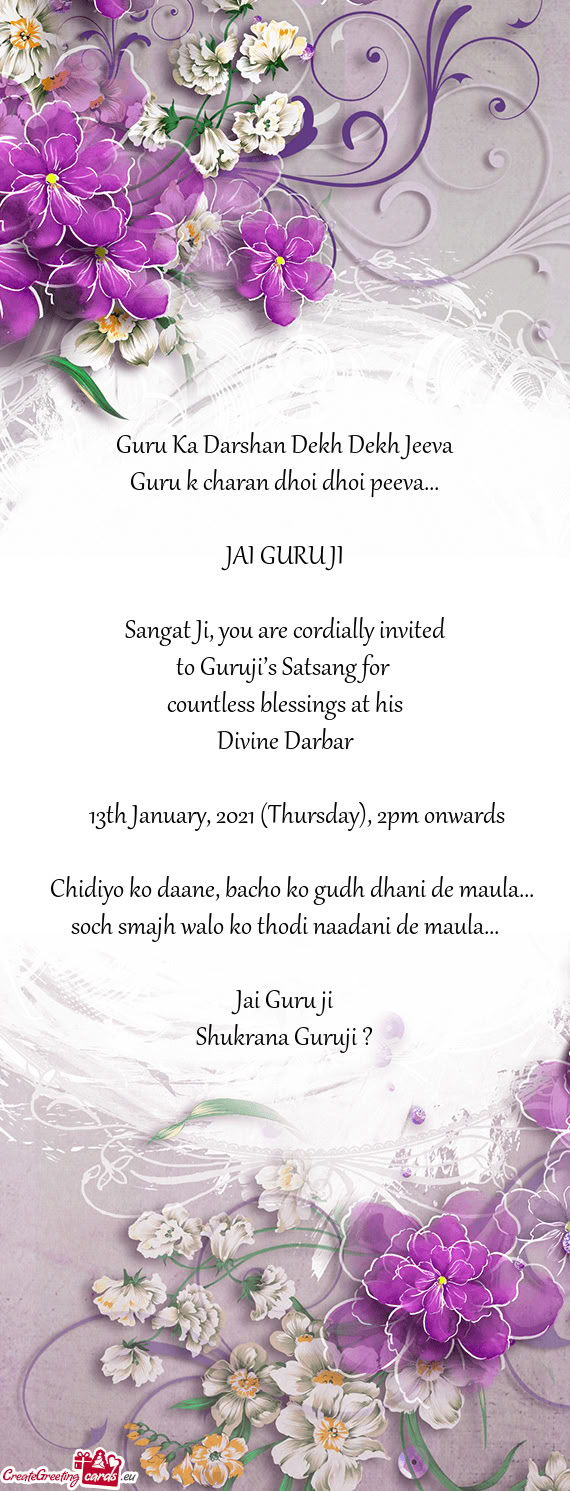 Guru Ka Darshan Dekh Dekh Jeeva
Guru k charan dhoi dhoi peeva...
JAI GURU JI
Sangat Ji, you are cordially invited
to Guruji’s Satsang for
countless blessings at his
Divine Darbar
13th January, 2021 (Thursday), 2pm onwards
Chidiyo ko daane, bacho ko gudh dhani de maula...
soch smajh walo ko thodi naadani de maula...
Jai Guru ji
Shukrana Guruji ?
CreateGreeting cards .eu